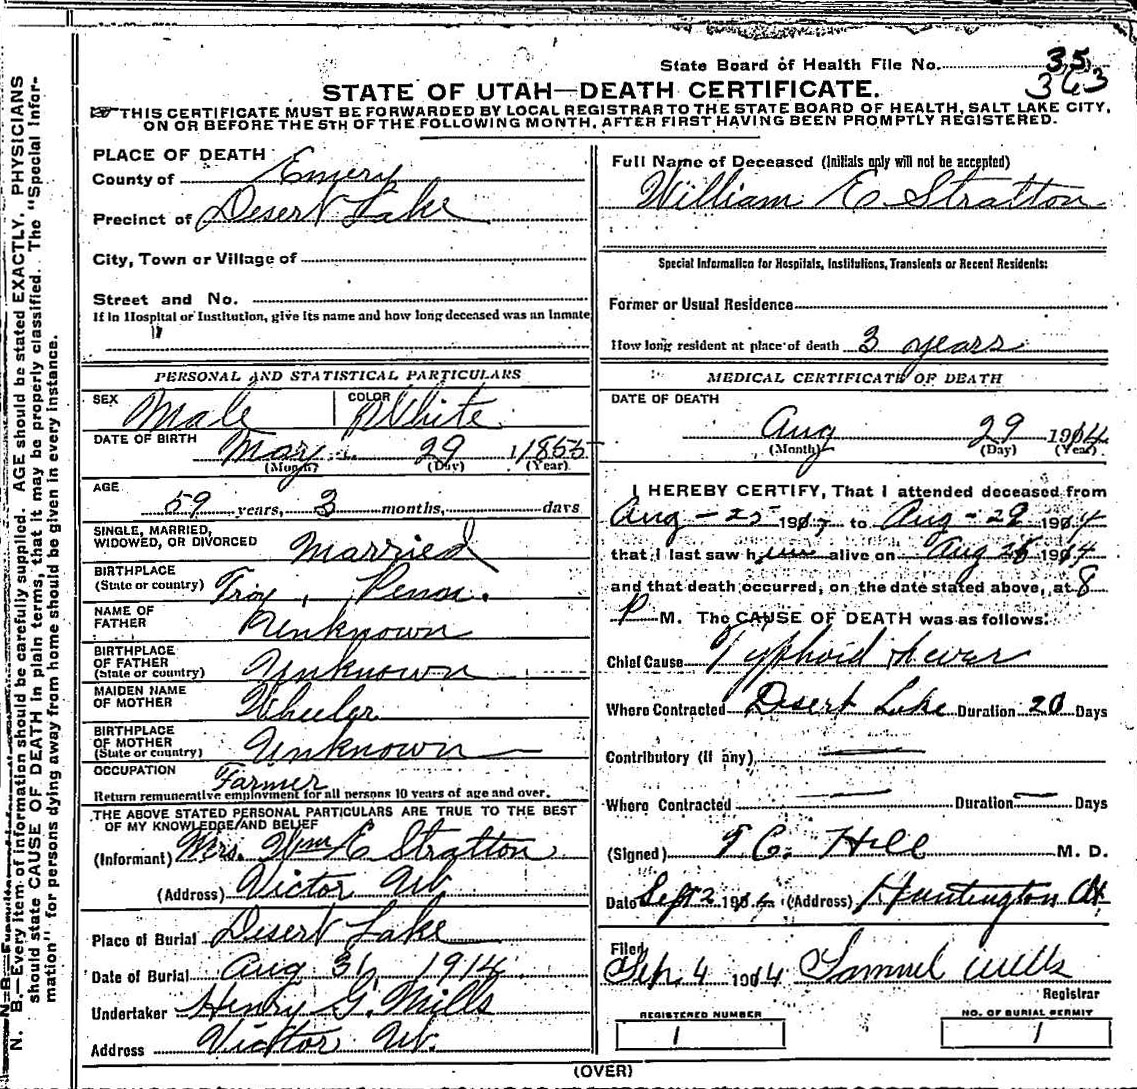 State Board of Health File No. 35
363
STATE OF UTAH—DEATH CERTIFICATE.
THIS CERTIFICATE MUST BE FORWARDED BY LOCAL REGISTRAR TO THE STATE BOARD OF HEALTH, SALT LAKE CITY,
ON OR BEFORE THE 5TH OF THE FOLLOWING MONTH, AFTER FIRST HAVING BEEN PROMPTLY REGISTERED.
N. B.—Every item of information should be carefully supplied. AGE should be stated EXACTLY. PHYSICIANS
should state CAUSE OF DEATH in plain terms, that it may be properly classified. The "Special Infor-
mation" for persons dying away from home should be given in every instance.
PLACE OF DEATH
County of Emery
Precinct of Desert Lake
City, Town or Village of
Street and No.
If in Hospital or Institution, give its name and how long deceased was an Inmate
PERSONAL AND STATISTICAL PARTICULARS
SEX Male COLOR White
DATE OF BIRTH May 29
(Month) (Day) (Year)
AGE
59 years, 3 months, days
SINGLE, MARRIED,
WIDOWED, OR DIVORCED Married
BIRTHPLACE
(State or country) Troy, Penn.
NAME OF
FATHER Unknown
BIRTHPLACE
OF FATHER
(State or country) Unknown
MAIDEN NAME
OF MOTHER Wheeler
BIRTHPLACE
OF MOTHER
(State or country) Unknown
OCCUPATION Farmer
Return remunerative employment for all persons 10 years of age and over.
THE ABOVE STATED PERSONAL PARTICULARS ARE TRUE TO THE BEST
OF MY KNOWLEDGE AND BELIEF
(Informant) Mrs. Wm E Stratton
(Address) Victor Ut.
Place of Burial Desert Lake
Date of Burial Aug 31, 1914
Undertaker Henry G. Mills
Address Victor Ut.
Full Name of Deceased (Initials only will not be accepted)
William E Stratton
Special Information for Hospitals, Institutions, Transients or Recent Residents:
Former or Usual Residence
How long resident at place of death 3 years
MEDICAL CERTIFICATE OF DEATH
DATE OF DEATH
Aug 29 1914
(Month) (Day) (Year)
I HEREBY CERTIFY, That I attended deceased from
Aug - 25 191 to Aug - 29 1914
that I last saw him alive on Aug 28 1914
and that death occurred, on the date stated above, at 8
P M. The CAUSE OF DEATH was as follows:
Chief Cause Typhoid Fever
Where Contracted Desert Lake Duration 20 Days
Contributory (if any)
Where Contracted Duration Days
(Signed) T. C. Hill M. D.
Date Sept 2 191 (Address) Huntington Ut.
Filed
Sep. 4 1914 Samuel Wells
Registrar
REGISTERED NUMBER
1
NO. OF BURIAL PERMIT
1
(OVER)